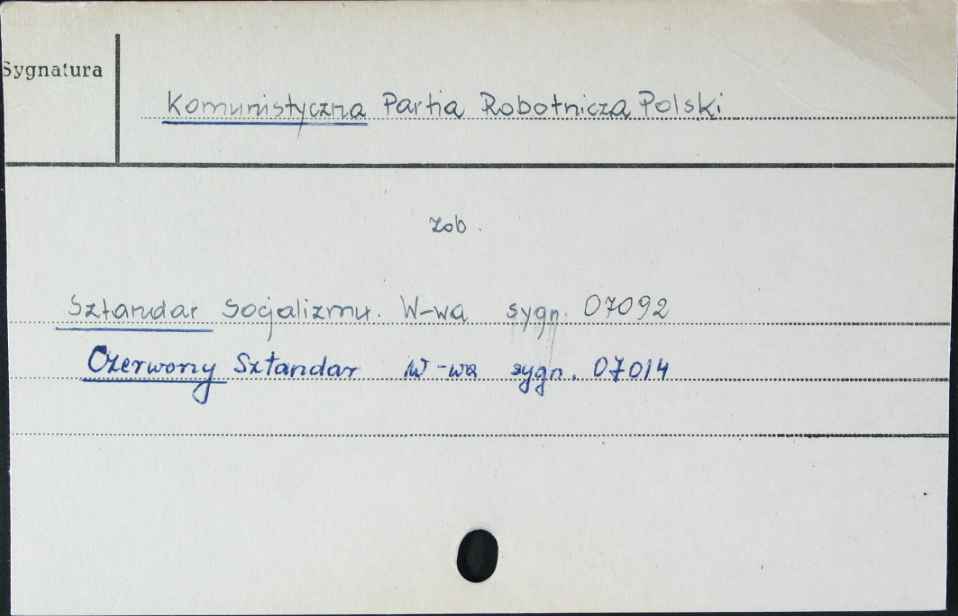 Sygnatura
Komunistyczna Partia Robotnicza Polski
zob.
Sztandar Socjalizmu. W-wa sygn. 07092
Czerwony Sztandar W-wa sygn. 07014